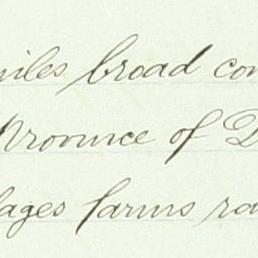 miles broad con
Province of D
lages farms ro